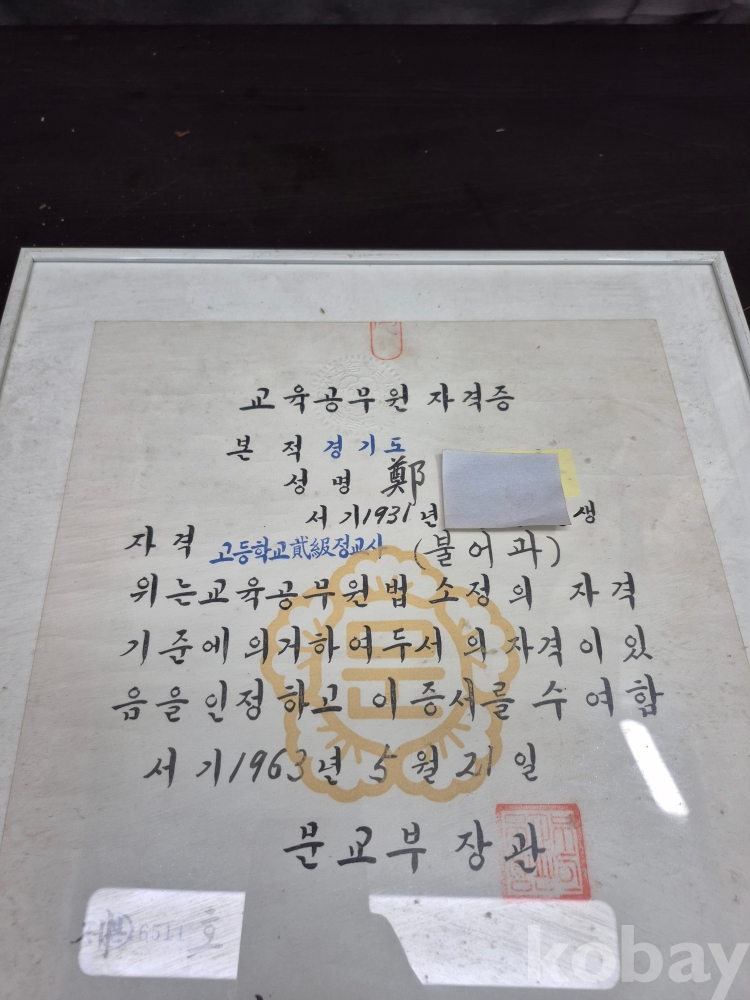 교육공무원 자격증
본적 경기도
성명 鄭
서기 1931년 생
자격 고등학교 貳級 정교사 (불어과)
위는 교육공무원법 소정의 자격
기준에 의거하여 두서의 자격이 있
음을 인정하고 이 증서를 수여함
서기 1963년 5월 21일
문교부 장관
호
kobay